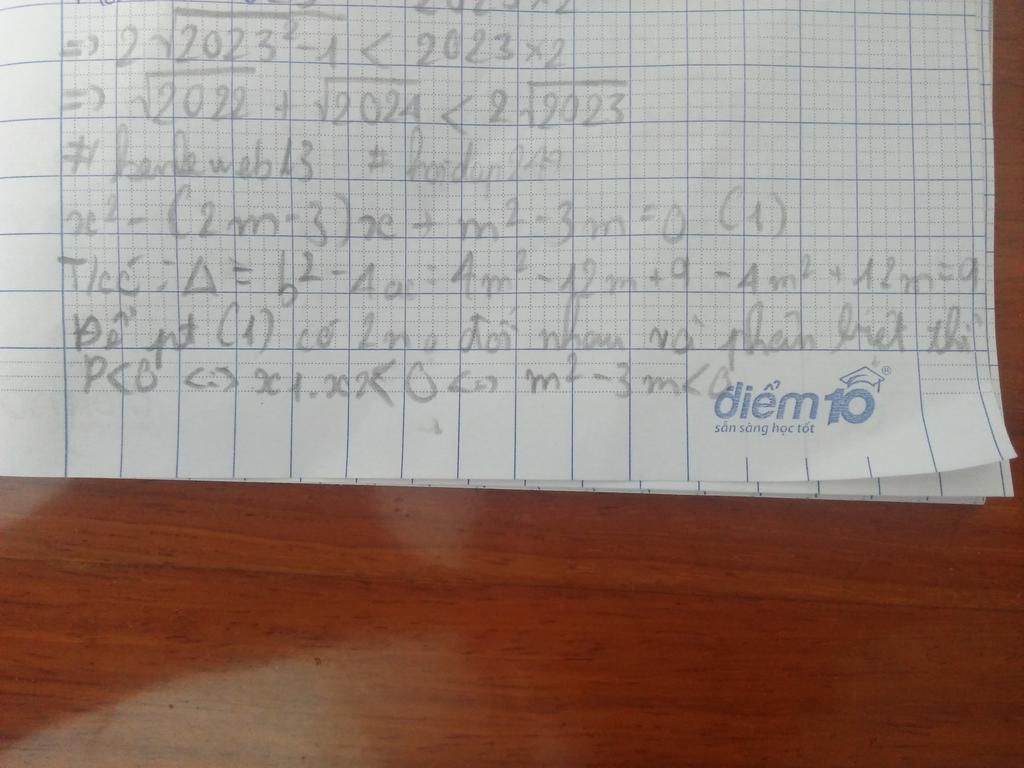 2023 × 2
=> 2√2023² - 1 < 2023 × 2
=> √2022 + √2024 < 2√2023
# henkeweb13 # hoidap247
x² - (2m - 3)x + m² - 3m = 0 (1)
Δ = b² - 4ac = 4m² - 12m + 9 - 4m² + 12m = 9
Để pt (1) có 2 no đối nhau và phân biệt thì
P < 0 <=> x1.x2 < 0 <=> m² - 3m < 0
điểm 10 ®
sẵn sàng học tốt